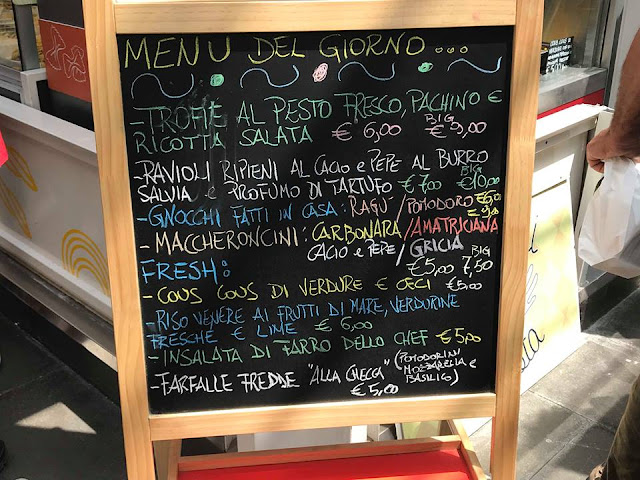 MENU DEL GIORNO...
- TROFIE AL PESTO FRESCO, PACHINO E
RICOTTA SALATA € 6,00 BIG € 9,00
- RAVIOLI RIPIENI AL CACIO e PEPE AL BURRO
SALVIA e PROFUMO DI TARTUFO € 7,00 BIG € 10,00
- GNOCCHI FATTI IN CASA: RAGU'/POMODORO €6,00
- MACCHERONCINI: CARBONARA/AMATRICIANA
CACIO e PEPE/GRICIA
FRESH: €5,00 BIG 7,50
- COUS COUS DI VERDURE E CECI €5,00
- RISO VENERE AI FRUTTI DI MARE, VERDURINE
FRESCHE E LIME € 6,00
- INSALATA DI FARRO DELLO CHEF €5,00
- FARFALLE FREDDE "ALLA CHECCA" (POMODORINI
MOZZARELLA e
€ 5,00 BASILICO)